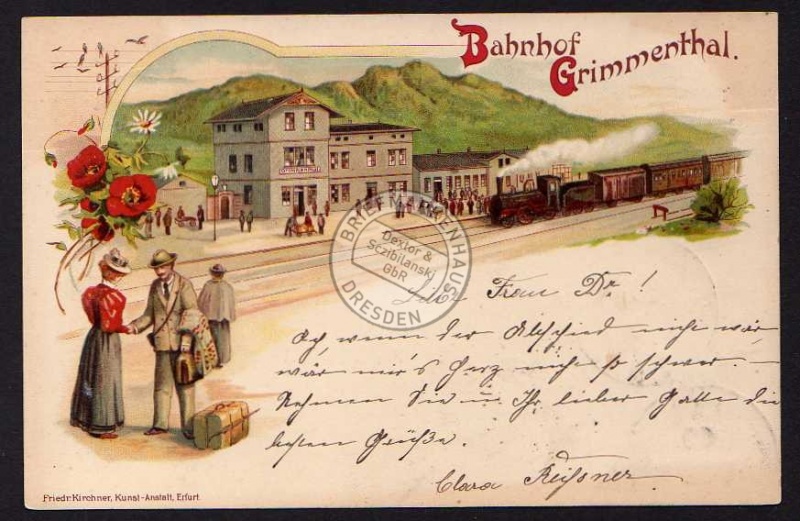 Bahnhof
Grimmenthal.
BRIEFMARKENHAUS
Dextor &
Sczibilanski
GbR
DRESDEN
Frau Dr.!
Ach, wenn der Abschied nicht wär,
wär mir's Herz nicht so schwer. —
Nehmen Sie u. Ihr lieber Gatte die
besten Grüße.
Clara Reißner
Friedr. Kirchner, Kunst-Anstalt, Erfurt.